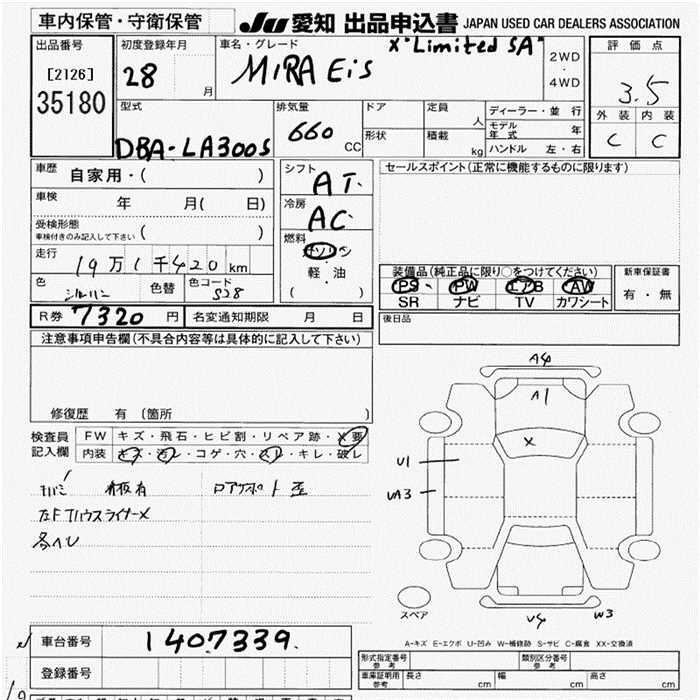 車内保管・守衛保管
JU 愛知 出品申込書 JAPAN USED CAR DEALERS ASSOCIATION
出品番号
[2126]
35180
初度登録年月
28
月
車名・グレード
X"Limited SA"
MIRA Eis
2WD
・
4WD
評価点
3.5
外装 内装
C C
型式
DBA-LA300S
排気量
660
CC
ドア
定員
人
形状
積載
kg
ディーラー・並 行
モデル年式 年
ハンドル 左・右
車歴
自家用・( )
車検
年 月( 日)
受検形態
車検付きのみ記入して下さい ( )
走行
19万1千420km
色
シルバー
色替
色コード
S28
シフト
AT
冷房
AC
燃料
ガソリン
軽・油
( )
セールスポイント(正常に機能するものに限ります)
装備品(純正品に限り○をつけてください)
PS PW エアB AW
SR ナビ TV カワシート
新車保証書
有・無
後日品
R券 7320 円
名変通知期限 月 日
注意事項申告欄(不具合内容等は具体的に記入して下さい)
修復歴 有(箇所 )
検査員
記入欄
FW キズ・飛石・ヒビ割・リペア跡・X要
内装 キズ・汚レ・コゲ・穴・スレ・キレ・破レ
左F
ライナーX
各ヘU
A4
A1
X
U1
UA3
U4
W3
スペア
A-キズ E-エクボ U-凹み W-補修跡 S-サビ C-腐食 XX-交換済
車台番号
1407339
登録番号
形式指定番号
参考
類別区分番号
参考
車庫証明用
参考
長さ cm
幅 cm
高さ cm